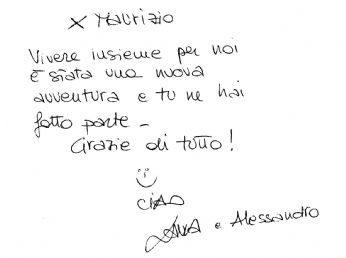 x Maurizio
Vivere insieme per noi
è stata una nuova
avventura e tu ne hai
fatto parte -
Grazie di tutto!
ciao
e Alessandro